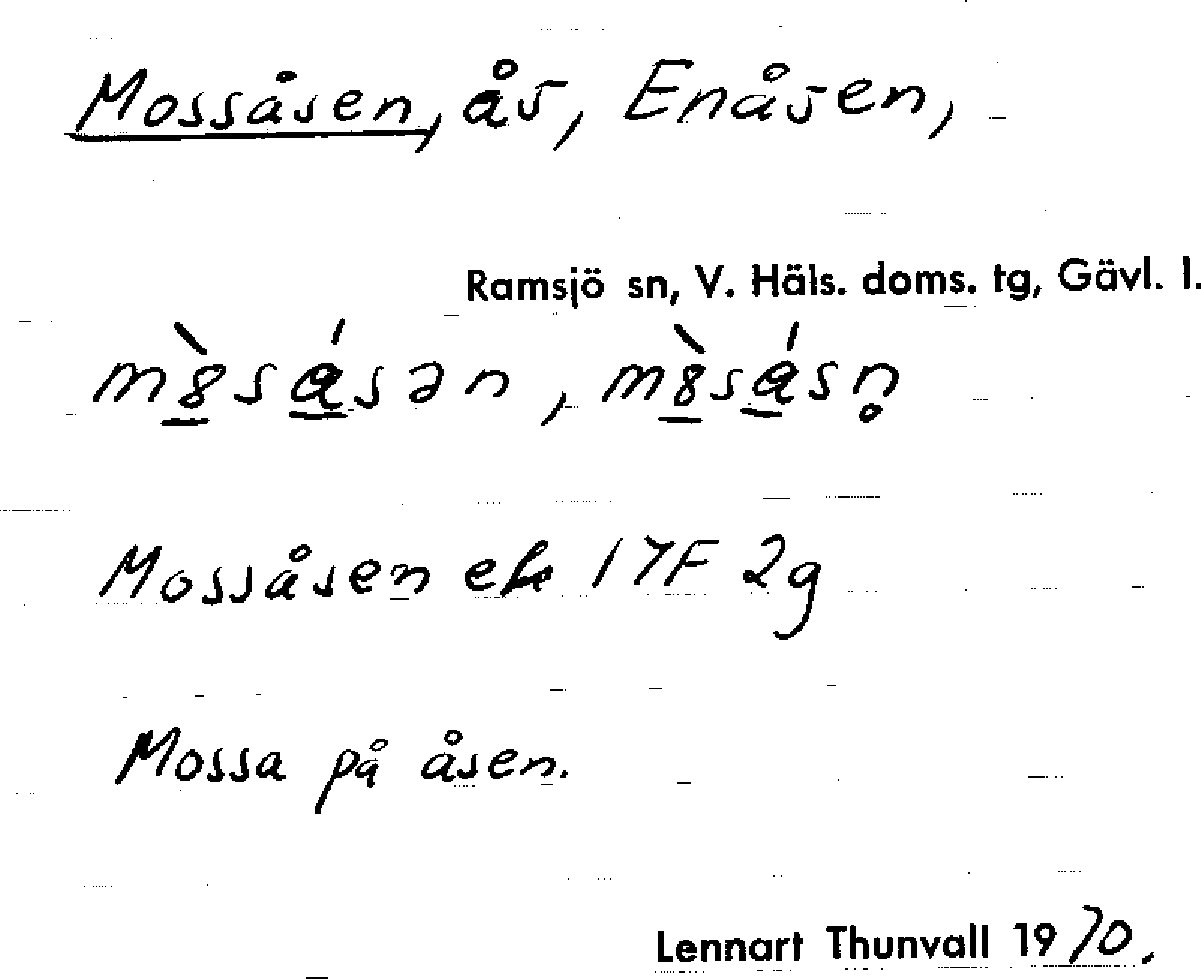 Mossåsen, ås, Enåsen,
Ramsjö sn, V. Häls. doms. tg, Gävl. l.
Mossåsen ek 17F 2g
Mossa på åsen.
Lennart Thunvall 1970.